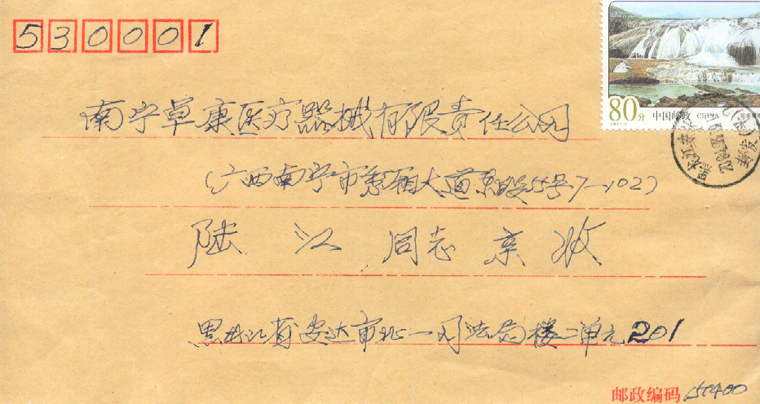 530001
80分 中国邮政 CHINA
南宁草康医疗器械有限责任公司
(广西南宁市秀厢大道东段55号7-102)
陆江 同志 亲收
黑龙江省安达市北一司法局楼二单元201
邮政编码 151400